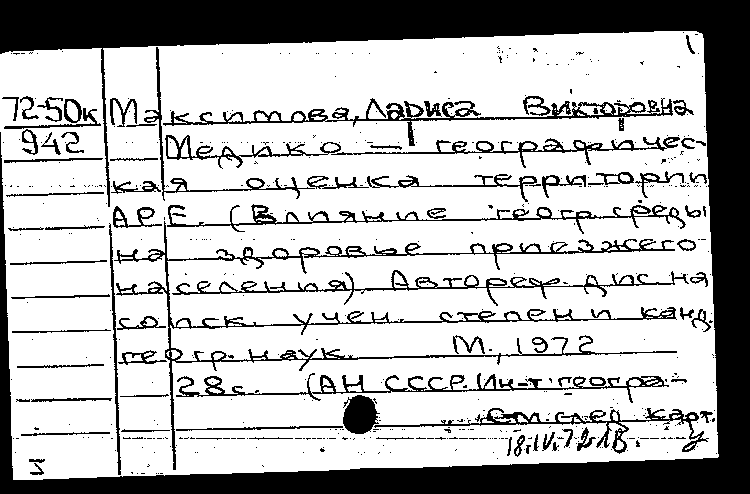 72-50к Максимова, Лариса Викторовна
942 Медико — географичес-
кая оценка территории
АРЕ. (Влияние геогр. среды
на здоровье приезжего
населения). Автореф. дис. на
соиск. учен. степени канд.
геогр. наук. М., 1972
28 с. (АН СССР. Ин-т геогра-
См. след. карт.
18.IV.72.1В.